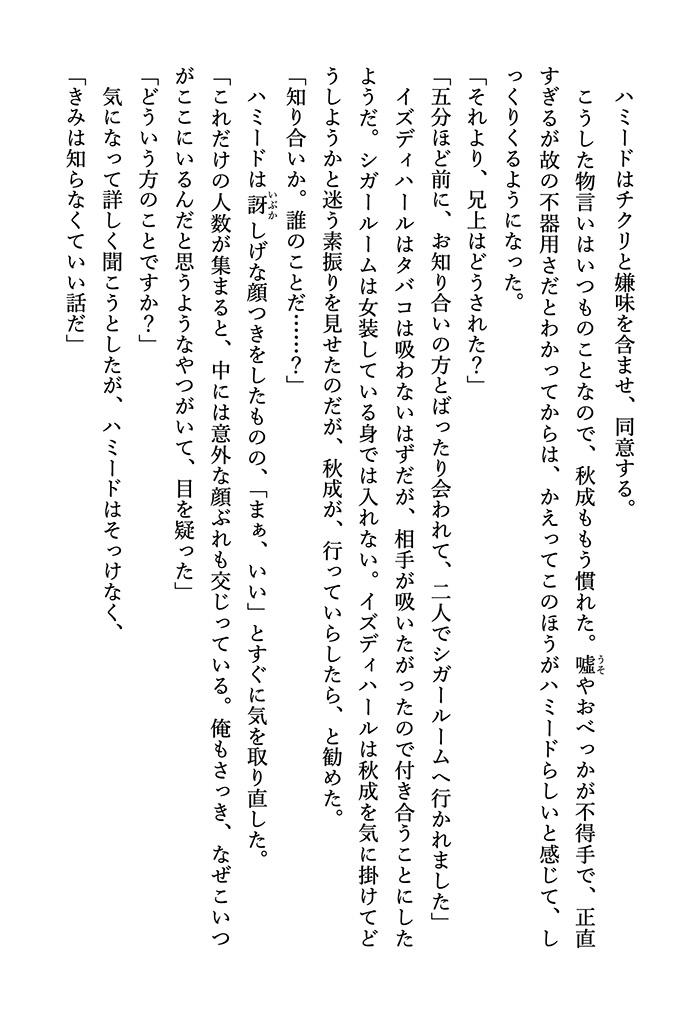 ハミードはチクリと嫌味を含ませ、同意する。
こうした物言いはいつものことなので、秋成ももう慣れた。嘘やおべっかが不得手で、正直
すぎるが故の不器用さだとわかってからは、かえってこのほうがハミードらしいと感じて、し
っくりくるようになった。
「それより、兄上はどうされた？」
「五分ほど前に、お知り合いの方とばったり会われて、二人でシガールームへ行かれました」
イズディハールはタバコは吸わないはずだが、相手が吸いたがったので付き合うことにした
ようだ。シガールームは女装している身では入れない。イズディハールは秋成を気に掛けてど
うしようかと迷う素振りを見せたのだが、秋成が、行っていらしたら、と勧めた。
「知り合いか。誰のことだ……？」
ハミードは訝しげな顔つきをしたものの、「まぁ、いい」とすぐに気を取り直した。
「これだけの人数が集まると、中には意外な顔ぶれも交じっている。俺もさっき、なぜこいつ
がここにいるんだと思うようなやつがいて、目を疑った」
「どういう方のことですか？」
気になって詳しく聞こうとしたが、ハミードはそっけなく、
「きみは知らなくていい話だ」